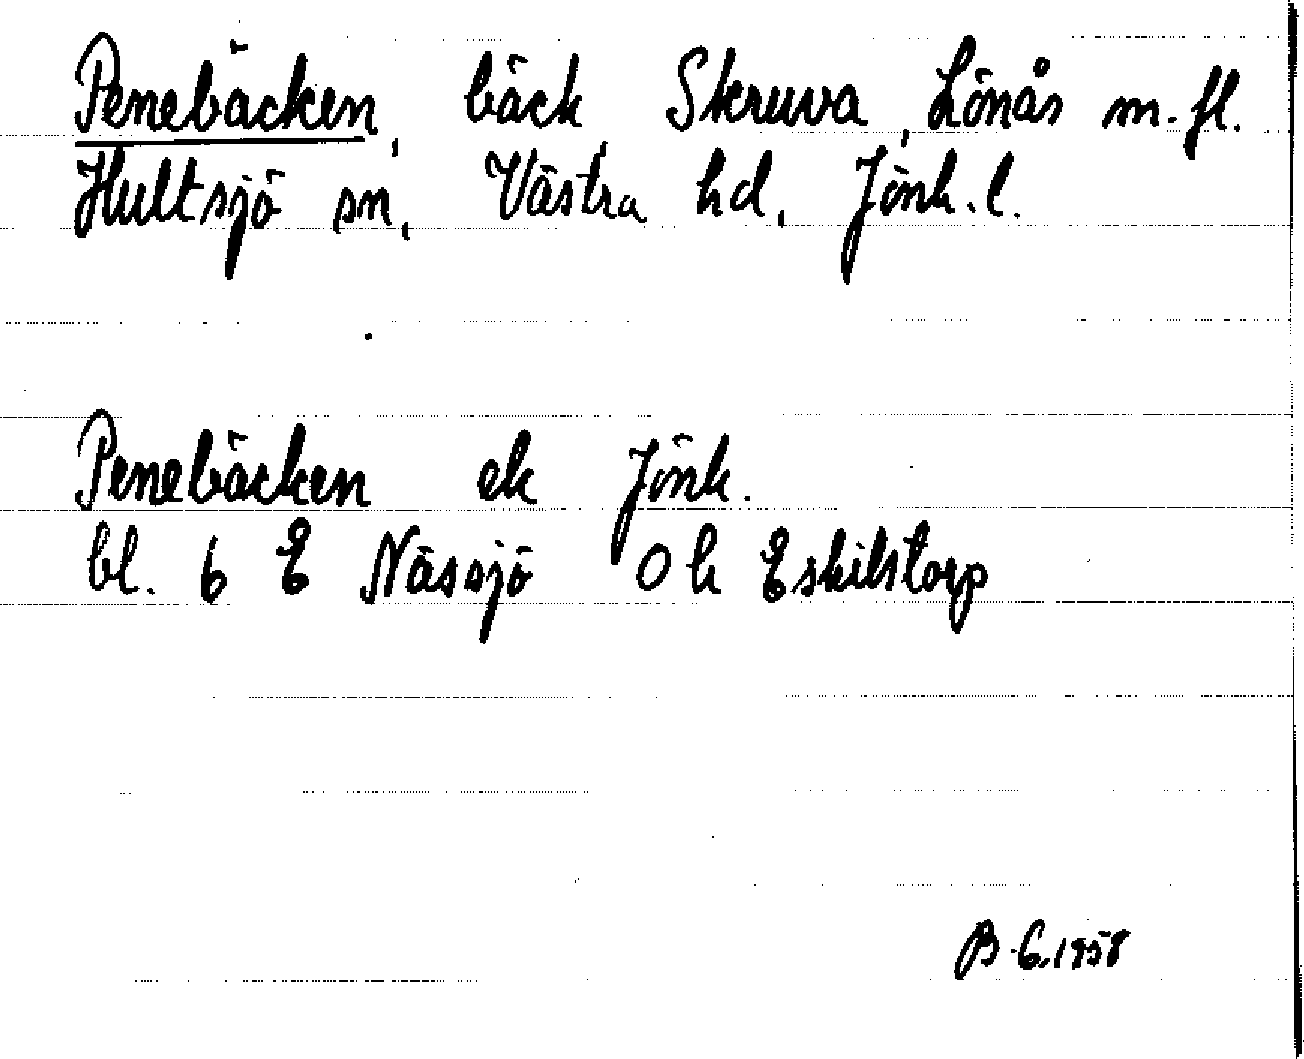 Penebäcken, bäck, Skruva, Lönås m.fl.
Hultsjö sn, Västra hd, Jönk.l.
Penebäcken ek Jönk.
bl. 6 E Nässjö Ok Eskilstorp
B.G. 1958